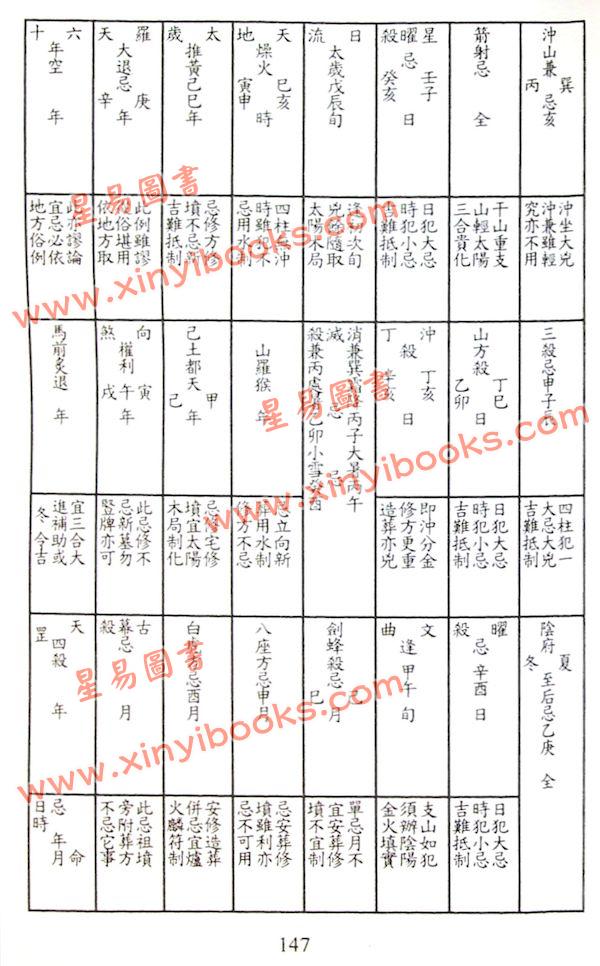 沖山兼巽丙忌亥
箭射忌全
星曜殺忌壬子癸亥日
日流太歲戊辰旬
天地燥火巳亥寅申時
太歲推黃己巳年
羅天大退忌庚辛年
六十年空年
沖坐大兇
沖兼雖輕
究亦不用
干山重支
山輕太陽
三合貴化
日犯大忌
時犯小忌
吉難抵制
逢初次旬
兇餘隨取
太陽木局
四柱
時雖犯不
忌用水制
忌修方修
墳不忌新
吉難抵制
此例雖謬
從俗堪用
依地方取
此亦謬論
宜忌必依
地方俗例
三殺忌申子辰
山方殺丁巳乙卯日
沖丁殺丁亥辛亥日
消滅兼巽霜降丙子大暑丙午
殺兼丙處暑乙卯小雪癸酉
山羅猴年
己土都天甲己年
向煞權利寅午戌年
馬前炙退年
四柱犯一
大忌大兇
吉難抵制
日犯大忌
時犯小忌
吉難抵制
即沖分金
修方更重
造葬亦兇
忌立向新
葬用水制
修方不忌
忌修宅修
墳宜太陽
木局制化
此忌修不
忌新墓勿
豎牌亦可
宜三合大
進補助或
冬令吉
陰府夏冬至后忌乙庚全
曜殺忌辛酉日
文曲逢甲午旬
劍蜂殺忌己巳月
八座方忌申月
白虎方忌酉月
古墓殺忌月
天罡四殺年
日犯大忌
時犯小忌
吉難抵制
支山如犯
須辦陰陽
金火填實
單忌月不
宜安葬修
墳不宜制
忌安葬修
墳雖利亦
忌不可用
安修造葬
併忌宜爐
火麟符制
此忌祖墳
旁附葬方
不忌它事
忌年月日時命
147
星易圖書
www.xinyibooks.com
星易圖書
www.xinyibooks.com
星易圖書
www.xinyibooks.com